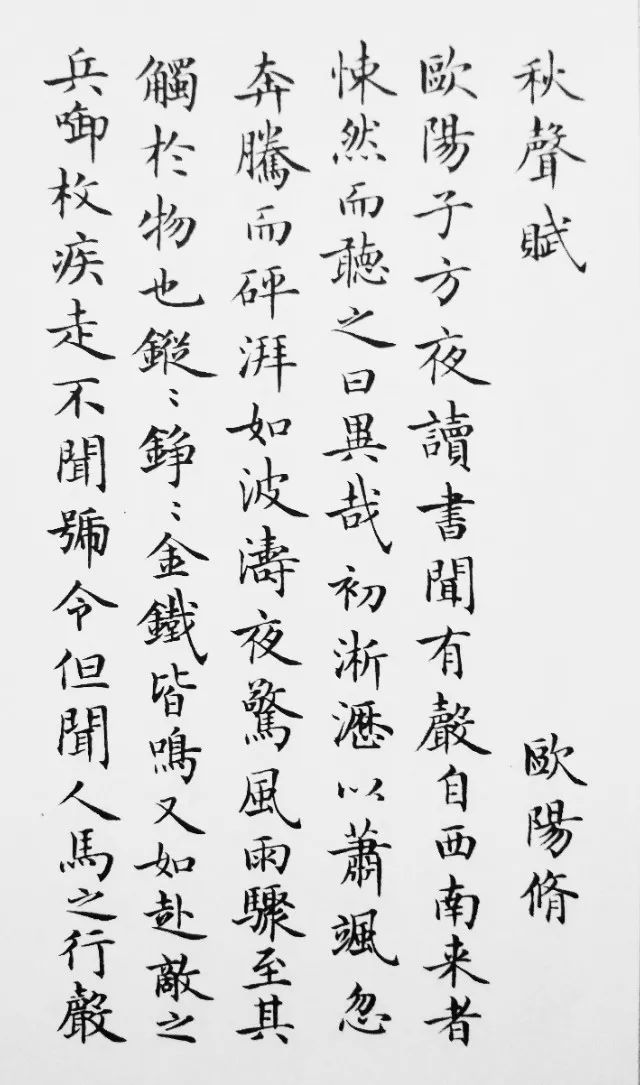 秋聲賦 歐陽脩
歐陽子方夜讀書聞有聲自西南来者
悚然而聽之曰異哉初淅瀝以蕭颯忽
奔騰而砰湃如波濤夜驚風雨驟至其
觸於物也鏦〻錚〻金鐵皆鳴又如赴敵之
兵啣枚疾走不聞號令但聞人馬之行聲